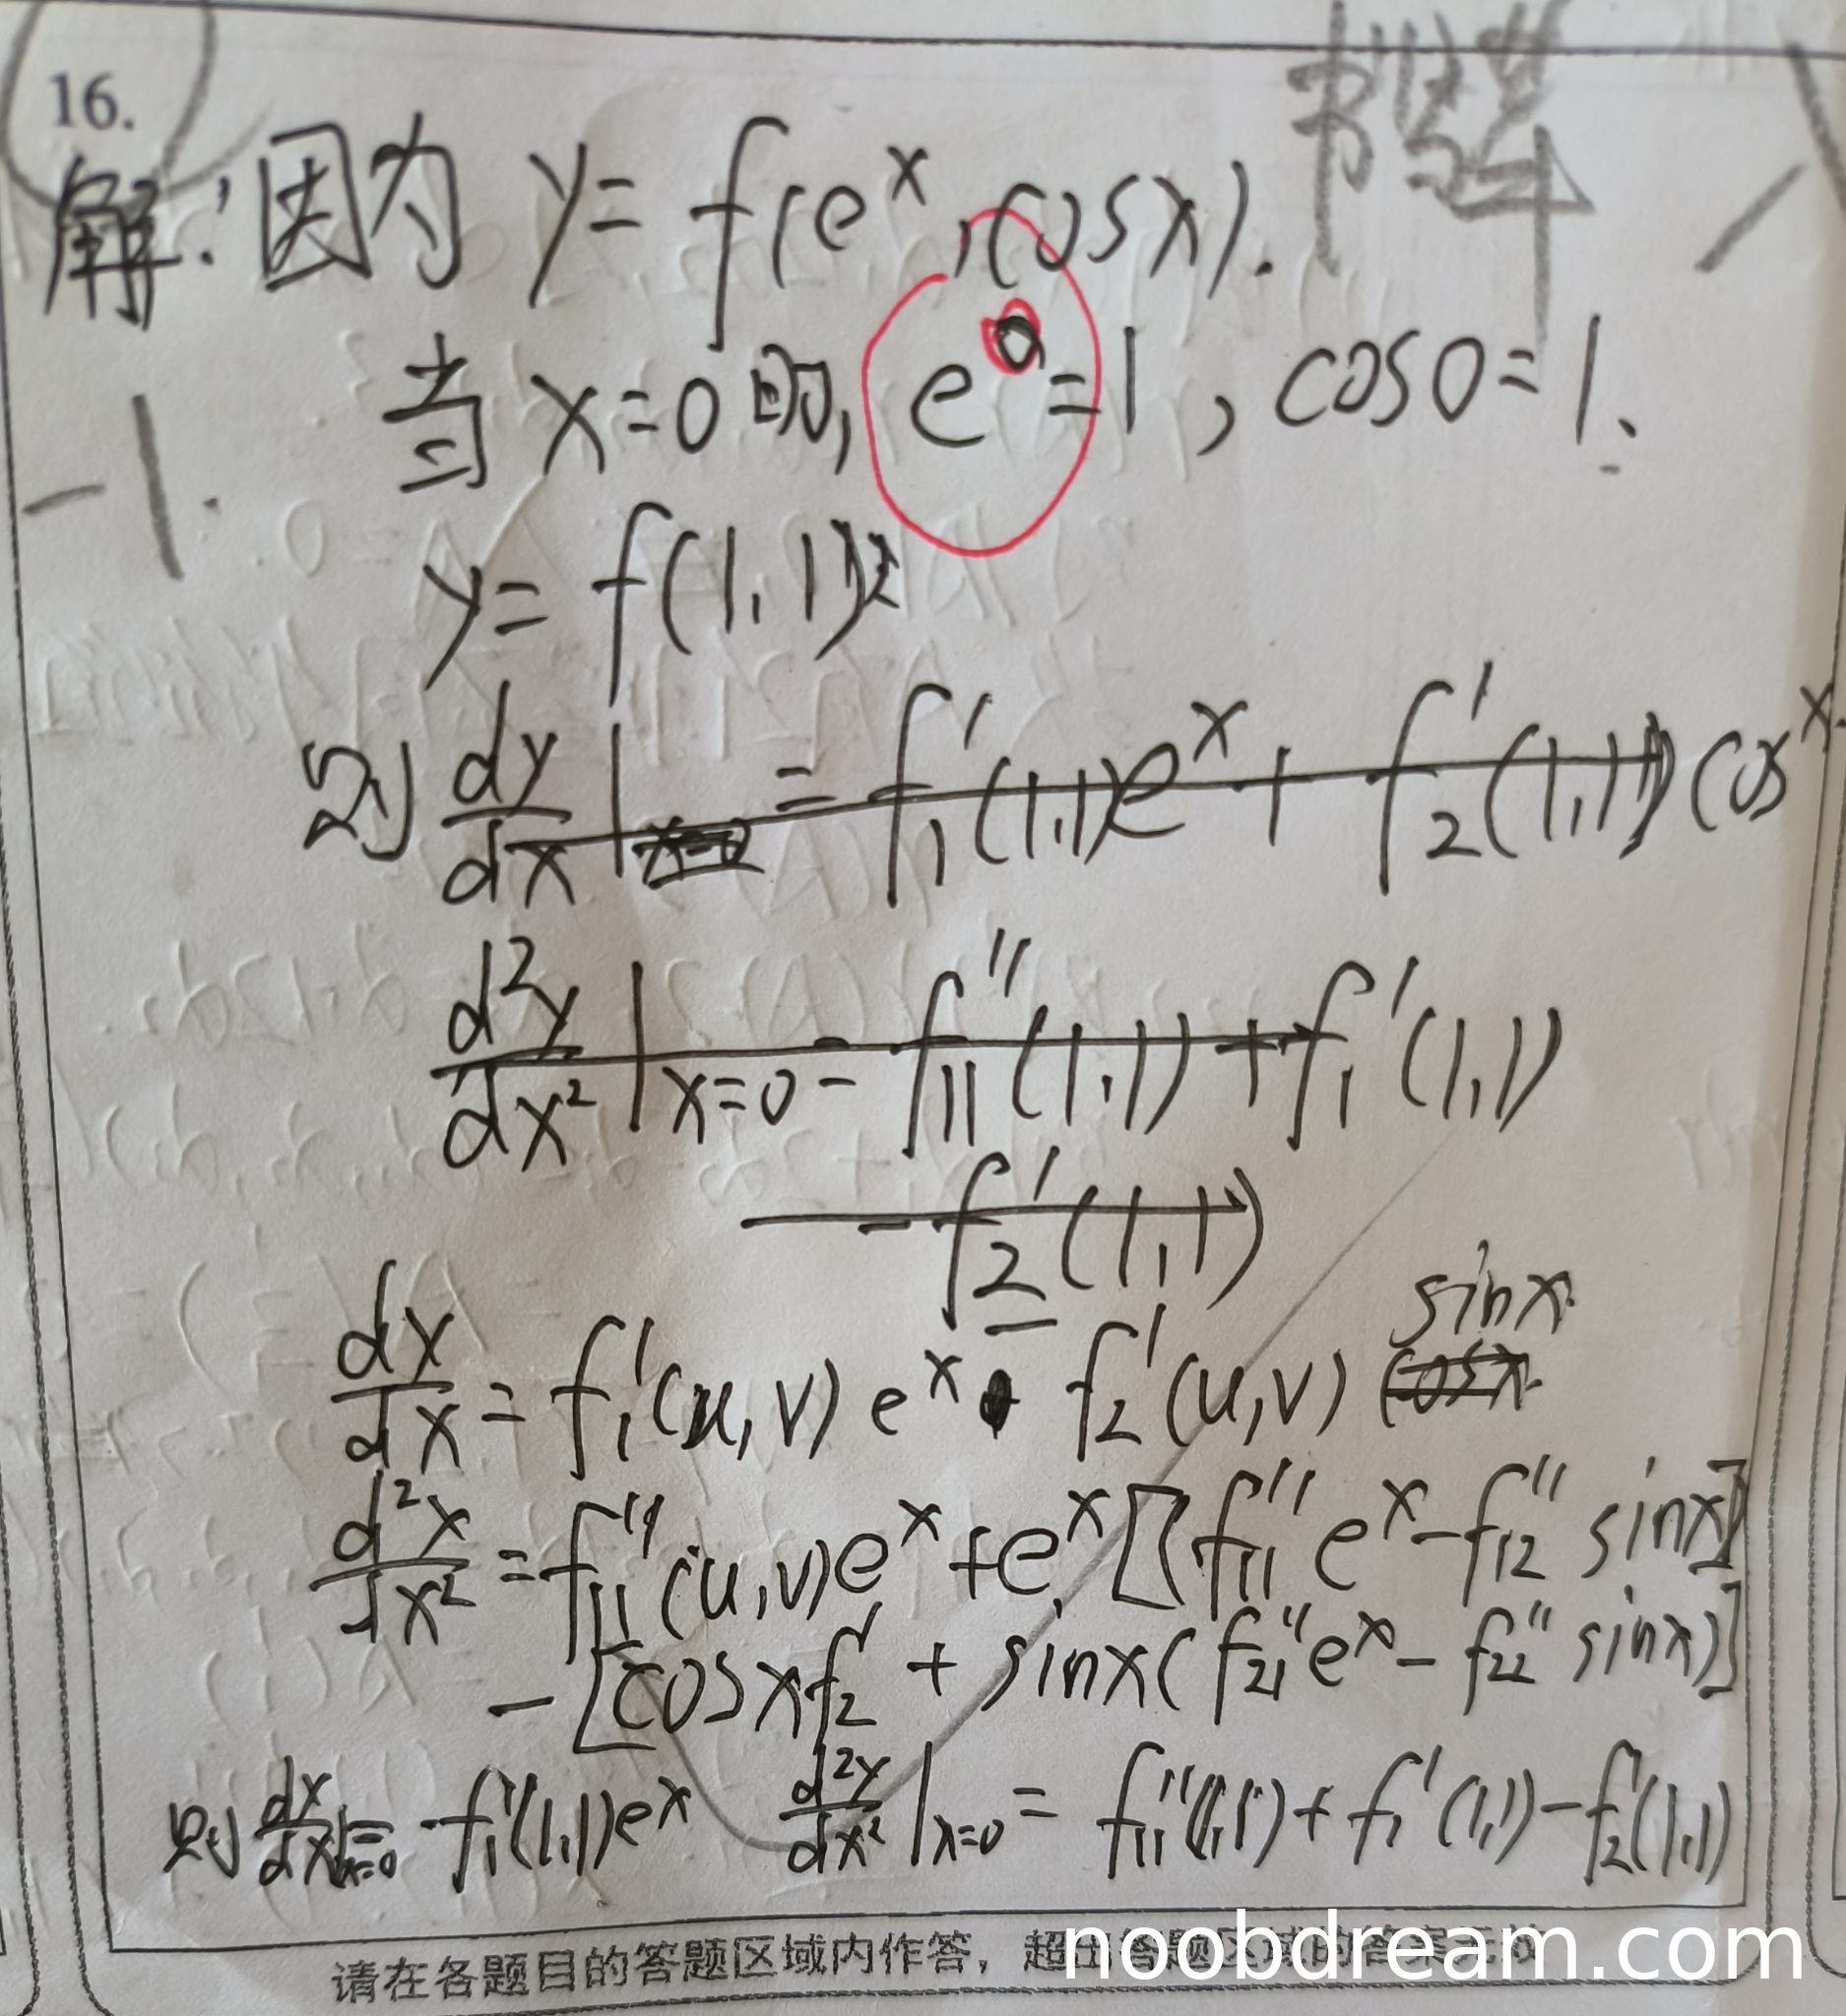 16.
解:因为 y= f(e^x,cosx).
当 x=0时, e^0=1, cos0=1.
-1.
y= f(1,1)
则 dy/dx | = f₁'(1,1)e^x + f₂'(1,1) cos^x
d²y/dx² | x=0 = f₁₁''(1,1) + f₁'(1,1)
- f₂'(1,1)
sinx
dy/dx = f₁'(u,v) e^x - f₂'(u,v) cosx
d²x/dx² = f₁₁''(u,v)e^x + e^x [f₁₁''e^x - f₁₂'' sinx]
- [cosxf₂' + sinx(f₂₁''e^x - f₂₂'' sinx)]
则 dy/dx |x=0 = f₁'(1,1)e^x d²y/dx² |x=0 = f₁₁''(1,1) + f₁'(1,1) - f₂'(1,1)
请在各题目的答题区域内作答，超出答题区域的答案无效
noobdream.com